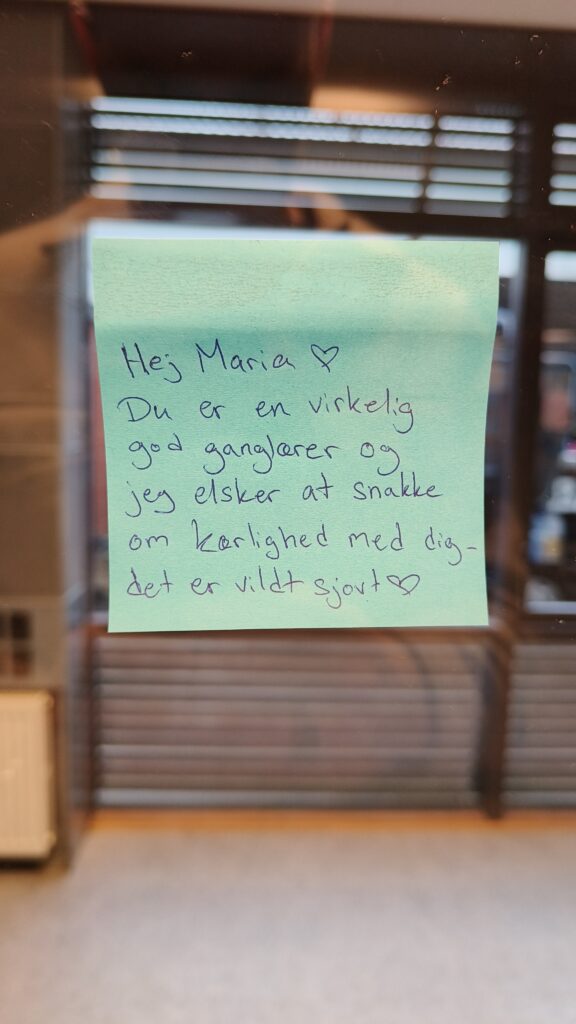 Hej Maria ♡
Du er en virkelig
god ganglærer og
jeg elsker at snakke
om kærlighed med dig-
det er vildt sjovt ♡